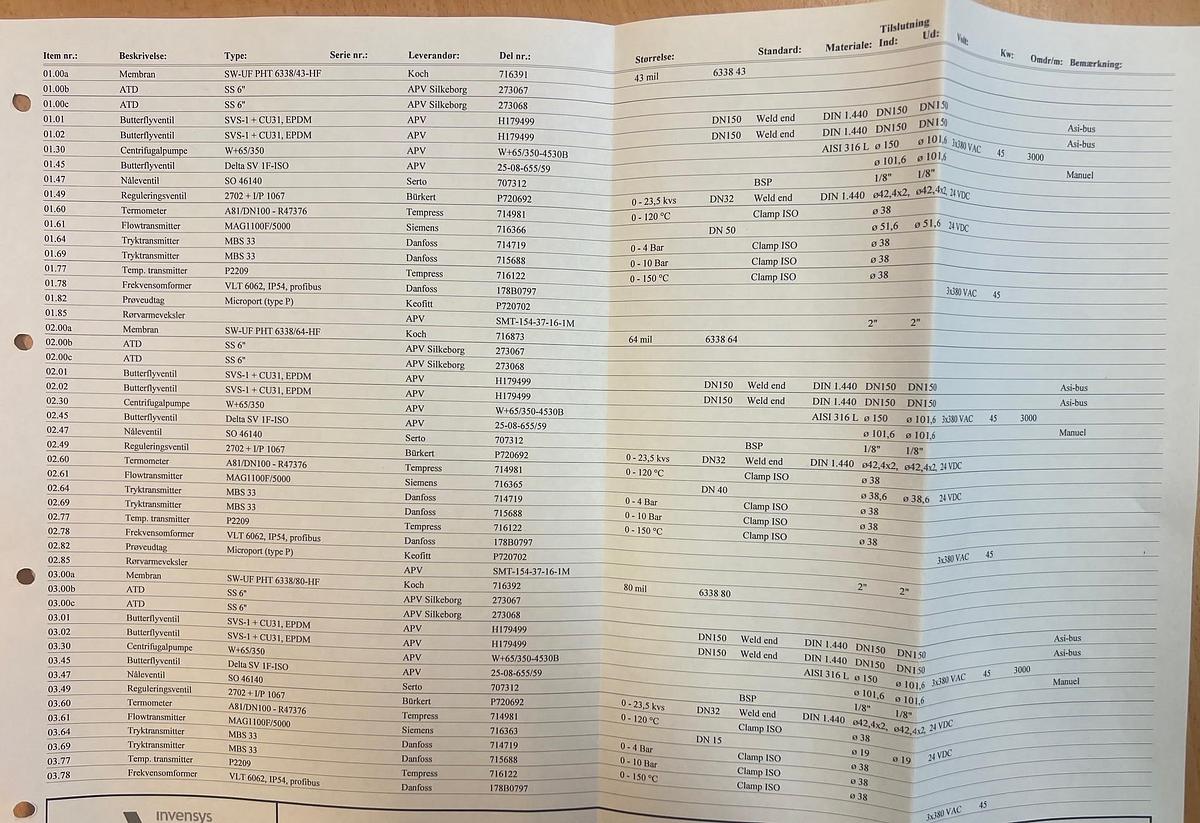 Item nr.: Beskrivelse: Type: Serie nr.: Leverandør: Del nr.: Størrelse: Standard: Materiale: Tilslutning Ind: Ud: Volt: Kw: Omdr/m: Bemærkning:
01.00a Membran SW-UF PHT 6338/43-HF Koch 716391 43 mil 6338 43
01.00b ATD SS 6" APV Silkeborg 273067
01.00c ATD SS 6" APV Silkeborg 273068
01.01 Butterflyventil SVS-1 + CU31, EPDM APV H179499 DN150 Weld end DIN 1.440 DN150 DN150 Asi-bus
01.02 Butterflyventil SVS-1 + CU31, EPDM APV H179499 DN150 Weld end DIN 1.440 DN150 DN150 Asi-bus
01.30 Centrifugalpumpe W+65/350 APV W+65/350-4530B AISI 316 L ø 150 ø 101,6 3x380 VAC 45 3000
01.45 Butterflyventil Delta SV 1F-ISO APV 25-08-655/59 ø 101,6 ø 101,6 Manuel
01.47 Nåleventil SO 46140 Serto 707312 BSP 1/8" 1/8"
01.49 Reguleringsventil 2702 + I/P 1067 Bürkert P720692 0 - 23,5 kvs DN32 Weld end DIN 1.440 ø42,4x2, ø42,4x2, 24 VDC
01.60 Termometer A81/DN100 - R47376 Tempress 714981 0 - 120 °C Clamp ISO ø 38
01.61 Flowtransmitter MAG1100F/5000 Siemens 716366 DN 50 ø 51,6 ø 51,6 24 VDC
01.64 Tryktransmitter MBS 33 Danfoss 714719 0 - 4 Bar Clamp ISO ø 38
01.69 Tryktransmitter MBS 33 Danfoss 715688 0 - 10 Bar Clamp ISO ø 38
01.77 Temp. transmitter P2209 Tempress 716122 0 - 150 °C Clamp ISO ø 38
01.78 Frekvensomformer VLT 6062, IP54, profibus Danfoss 178B0797 3x380 VAC 45
01.82 Prøveudtag Microport (type P) Keofitt P720702
01.85 Rørvarmeveksler APV SMT-154-37-16-1M 2" 2"
02.00a Membran SW-UF PHT 6338/64-HF Koch 716873 64 mil 6338 64
02.00b ATD SS 6" APV Silkeborg 273067
02.00c ATD SS 6" APV Silkeborg 273068
02.01 Butterflyventil SVS-1 + CU31, EPDM APV H179499 DN150 Weld end DIN 1.440 DN150 DN150 Asi-bus
02.02 Butterflyventil SVS-1 + CU31, EPDM APV H179499 DN150 Weld end DIN 1.440 DN150 DN150 Asi-bus
02.30 Centrifugalpumpe W+65/350 APV W+65/350-4530B AISI 316 L ø 150 ø 101,6 3x380 VAC 45 3000
02.45 Butterflyventil Delta SV 1F-ISO APV 25-08-655/59 ø 101,6 ø 101,6 Manuel
02.47 Nåleventil SO 46140 Serto 707312 BSP 1/8" 1/8"
02.49 Reguleringsventil 2702 + I/P 1067 Bürkert P720692 0 - 23,5 kvs DN32 Weld end DIN 1.440 ø42,4x2, ø42,4x2, 24 VDC
02.60 Termometer A81/DN100 - R47376 Tempress 714981 0 - 120 °C Clamp ISO ø 38
02.61 Flowtransmitter MAG1100F/5000 Siemens 716365 DN 40 ø 38,6 ø 38,6 24 VDC
02.64 Tryktransmitter MBS 33 Danfoss 714719 0 - 4 Bar Clamp ISO ø 38
02.69 Tryktransmitter MBS 33 Danfoss 715688 0 - 10 Bar Clamp ISO ø 38
02.77 Temp. transmitter P2209 Tempress 716122 0 - 150 °C Clamp ISO ø 38
02.78 Frekvensomformer VLT 6062, IP54, profibus Danfoss 178B0797 3x380 VAC 45
02.82 Prøveudtag Microport (type P) Keofitt P720702
02.85 Rørvarmeveksler APV SMT-154-37-16-1M 2" 2"
03.00a Membran SW-UF PHT 6338/80-HF Koch 716392 80 mil 6338 80
03.00b ATD SS 6" APV Silkeborg 273067
03.00c ATD SS 6" APV Silkeborg 273068
03.01 Butterflyventil SVS-1 + CU31, EPDM APV H179499 DN150 Weld end DIN 1.440 DN150 DN150 Asi-bus
03.02 Butterflyventil SVS-1 + CU31, EPDM APV H179499 DN150 Weld end DIN 1.440 DN150 DN150 Asi-bus
03.30 Centrifugalpumpe W+65/350 APV W+65/350-4530B AISI 316 L ø 150 ø 101,6 3x380 VAC 45 3000
03.45 Butterflyventil Delta SV 1F-ISO APV 25-08-655/59 ø 101,6 ø 101,6 Manuel
03.47 Nåleventil SO 46140 Serto 707312 BSP 1/8" 1/8"
03.49 Reguleringsventil 2702 + I/P 1067 Bürkert P720692 0 - 23,5 kvs DN32 Weld end DIN 1.440 ø42,4x2, ø42,4x2, 24 VDC
03.60 Termometer A81/DN100 - R47376 Tempress 714981 0 - 120 °C Clamp ISO ø 38
03.61 Flowtransmitter MAG1100F/5000 Siemens 716363 DN 15 ø 19 ø 19 24 VDC
03.64 Tryktransmitter MBS 33 Danfoss 714719 0 - 4 Bar Clamp ISO ø 38
03.69 Tryktransmitter MBS 33 Danfoss 715688 0 - 10 Bar Clamp ISO ø 38
03.77 Temp. transmitter P2209 Tempress 716122 0 - 150 °C Clamp ISO ø 38
03.78 Frekvensomformer VLT 6062, IP54, profibus Danfoss 178B0797 3x380 VAC 45
invensys